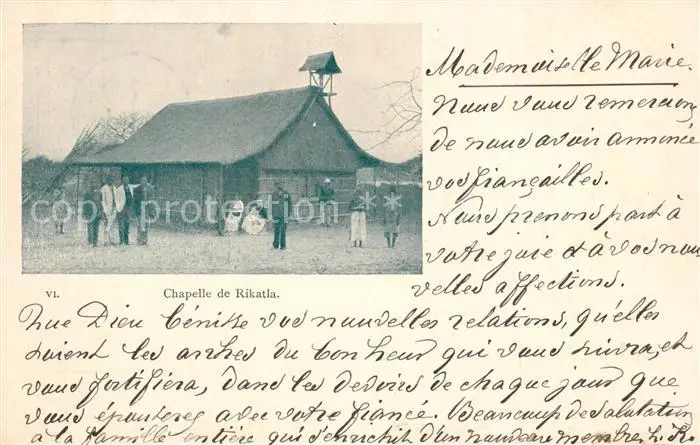 Mademoiselle Marie.
Nous vous remercions
de nous avoir annoncé
vos fiançailles.
Nous prenons part à
votre joie et à vos nou
velles affections.
VI. Chapelle de Rikatla.
Que Dieu bénisse vos nouvelles relations, qu'elles
soient les arches du bonheur qui vous suivra, et
vous fortifiera, dans les devoirs de chaque jour que
vous épouterez avec votre fiancé. Beaucoup de salutation
à la famille entière qui s'enrichit d'un nouveau membre.
copyright-protected